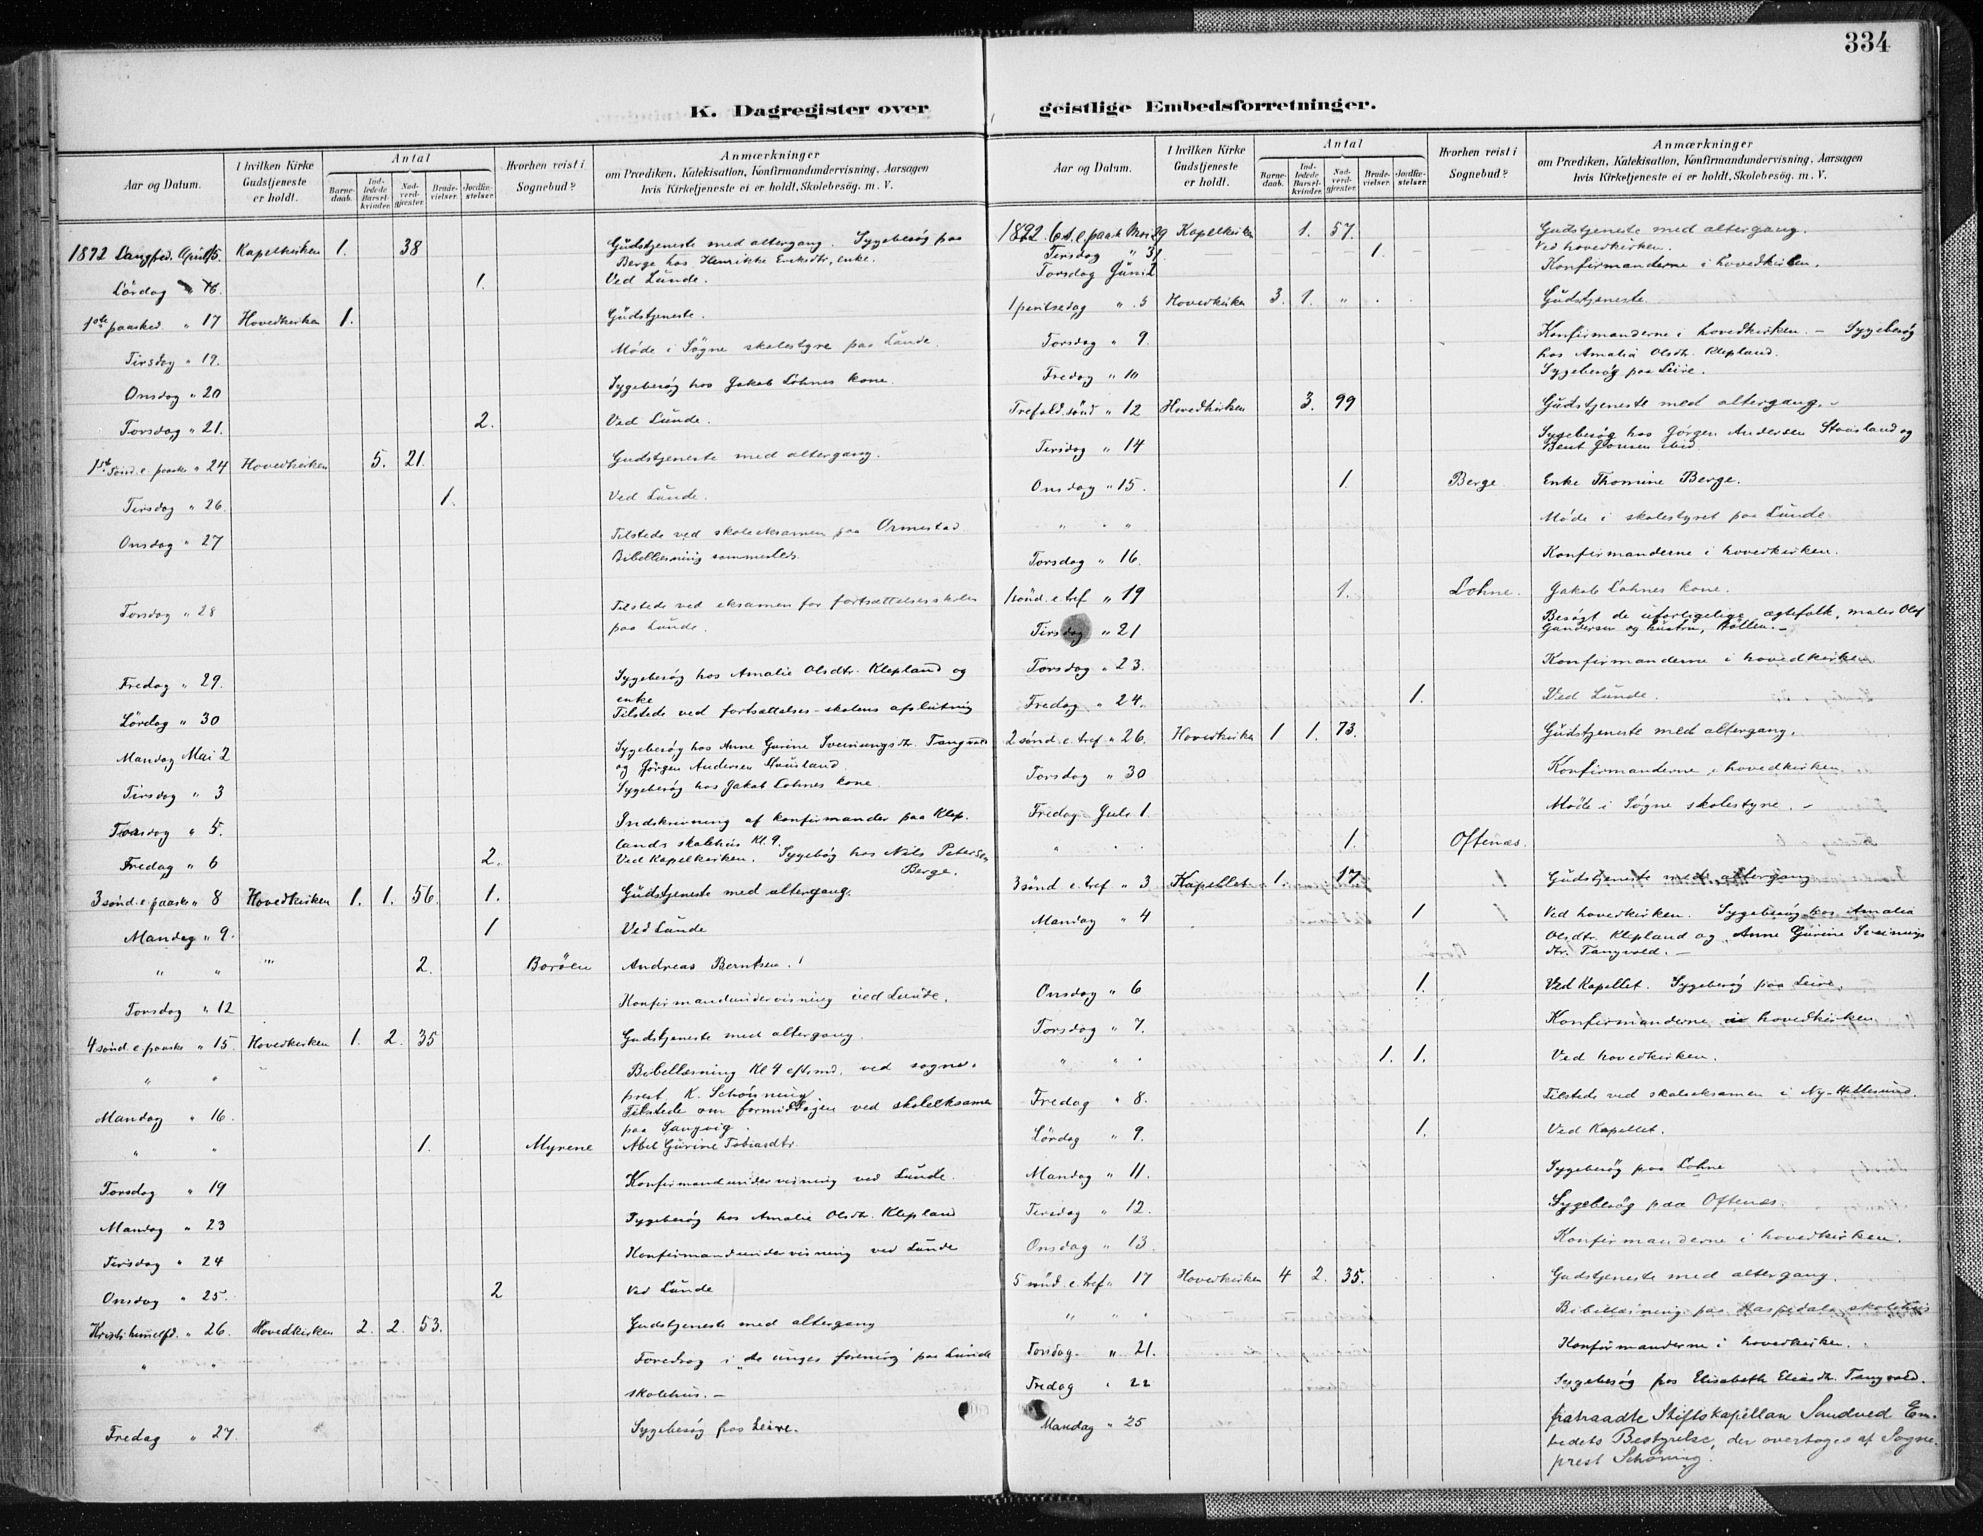 334
K. Dagregister over
Aar og Datum.
I hvilken Kirke Gudstjeneste er holdt.
Antal
Barnedaab.
Indledede Barselkvinder.
Nadverdgjæster.
Brudevielser.
Jordfæstelser.
Hvorhen reist i Sognebud?
Anmærkninger
om Prædiken, Katekisation, Konfirmandundervisning, Aarsagen
hvis Kirketjeneste ei er holdt, Skolebesög. m. V.
1892 Langfred. April 15. Kapelkirken 1. 38 Gudstjeneste med altergang. Sygebesøg paa
Berge hos Henrikke Eriksdtr, enke.
Lördag " 16. 1. Ved Lunde.
1ste paasked. " 17 Hovedkirken 1. Gudstjeneste.
Tirsdag " 19. Møde i Søgne skolestyre paa Lunde.
Onsdag " 20 Sygebesøg hos Jakob Lohnes kone.
Torsdag " 21. 2. Ved Lunde.
1st sönd. e. paaske " 24 Hovedkirken 5. 21. Gudstjeneste med altergang.
Tirsdag " 26. 1. Ved Lunde.
Onsdag " 27 Tilstede ved skoleeksamen paa Ormestad
Bibellæsning sammesteds.
Torsdag " 28 Tilstede ved eksamen for fortsættelsesskolen
paa Lunde.
Fredag " 29. Sygebesøg hos Amalie Olsdtr. Klepland og
enke
Lördag " 30 Tilstede ved fortsættelses-skolens afslutning
Mandag Mai 2 Sygebesøg hos Anne Gurine Sveinungsdtr. Tangvald
og Jörgen Andersen Stausland.
Tirsdag " 3 Sygebesøg hos Jakob Lohnes kone.
Torsdag " 5. Indskrivning af konfirmander paa Klep.
lands skolehus Kl. 9.
Fredag " 6 2. Ved Kapelkirken. Sygebesøg hos Nils Petersen
Berge.
3 sönd. e. paaske " 8 Hovedkirken 1. 1. 56. 1. Gudstjeneste med altergang.
Mandag " 9. 1 Ved Lunde
" " " 2. Borøen Andreas Berntsen.
Torsdag " 12 Konfirmandundervisning ved Lunde.
4 sönd. e. paaske " 15. Hovedkirken 1. 2. 35 Gudstjeneste med altergang.
" " Bibellæsning Kl 4 eftmd. ved sogne-
prest K. Schöning
Mandag " 16. Tilstede om formiddagen ved skoleeksamen
paa Langvig.
" " 1. Myrene Abel Gurine Tobiasdtr.
Torsdag " 19 Konfirmandundervisning ved Lunde.
Mandag " 23 Sygebesøg hos Amalie Olsdtr. Klepland
Tirsdag " 24 Konfirmandundervisning ved Lunde
Onsdag " 25. 2 Ved Lunde
Kristi himmelfd. " 26. Hovedkirken 2. 2. 53. Gudstjeneste med altergang
" " Foredrag i "de unges forening" paa Lunde
skolehus. —
Fredag " 27. Sygebesøg paa Leire.
geistlige Embedsforretninger.
Aar og Datum.
I hvilken Kirke Gudstjeneste er holdt.
Antal
Barnedaab.
Indledede Barselkvinder.
Nadverdgjæster.
Brudevielser.
Jordfæstelser.
Hvorhen reist i Sognebud?
Anmærkninger
om Prædiken, Katekisation, Konfirmandundervisning, Aarsagen
hvis Kirketjeneste ei er holdt, Skolebesög. m. V.
1892. 6 s. e paask Mai 29 Kapelkirken 1. 57. Gudstjeneste med altergang.
Tirsdag " 31. 1. Ved hovedkirken.
Torsdag Juni 2 Konfirmanderne i hovedkirken.
1 pintsedag " 5 Hovedkirken 3. 1. " Gudstjeneste
Torsdag " 9. Konfirmanderne i hovedkirken. — Sygebesøg
hos Amalia Olsdtr. Klepland.
Fredag " 10 Sygebesøg paa Leire.
Trefold. sönd " 12 Hovedkirken 3. 99 Gudstjeneste med altergang. —
Tirsdag " 14 Sygebesøg hos Jörgen Andersen Stausland og
Onsdag " 15. 1. Berge. Enke Thomine Berge.
" " " Møde i skolestyret paa Lunde
Torsdag " 16. Konfirmanderne i hovedkirken.
1 sönd. e. tref " 19 1. Lohne. Jakob Lohnes kone.
Tirsdag " 21 Besøgt de uforligelige ægtefolk, maler Olaf
Gundersen og hustru, Höllen. —
Torsdag " 23. Konfirmanderne i hovedkirken
Fredag " 24. 1. Ved Lunde.
2 sönd. e. tref " 26. Hovedkirken 1 1. 73. Gudstjeneste med altergang.
Torsdag " 30 Konfirmanderne i hovedkirken
Fredag Juli 1. Møde i Søgne skolestyre. —
" " 1. Oftenæs.
3 sönd e. tref " 3 Kapellet 1. 17. Gudstjeneste med altergang
Mandag " 4 1 Ved hovedkirken. Sygebesøg hos Amalia
Olsdtr. Klepland og Anne Gurine Sveinungs
dtr. Tangvald. —
Onsdag " 6 1. Ved Kapellet. Sygebesøg paa Leire.
Torsdag " 7. Konfirmanderne i hovedkirken
" " " 1. 1. Ved hovedkirken.
Fredag " 8. Tilstede ved skoleeksamen i Ny-Hellesund.
Lördag " 9. 1. Ved Kapellet.
Mandag " 11. Sygebesøg paa Lohne
Tirsdag " 12. Sygebesøg paa Oftenæs.
Onsdag " 13. Konfirmanderne i hovedkirken.
5 sönd. e. tref " 17 Hovedkirken 4 2. 35. Gudstjeneste med altergang.
" " " Bibellæsning paa Haspedals skolehus
Torsdag. " 21. Konfirmanderne i hovedkirken.
Fredag " 22 Sygebesøg hos Elisabeth Eliasdtr. Tangvald.
Mandag " 25 fratraadte Stiftskapellan Sandved Em-
bedets Bestyrelse, der overtoges af Sogne-
prest Schöning.